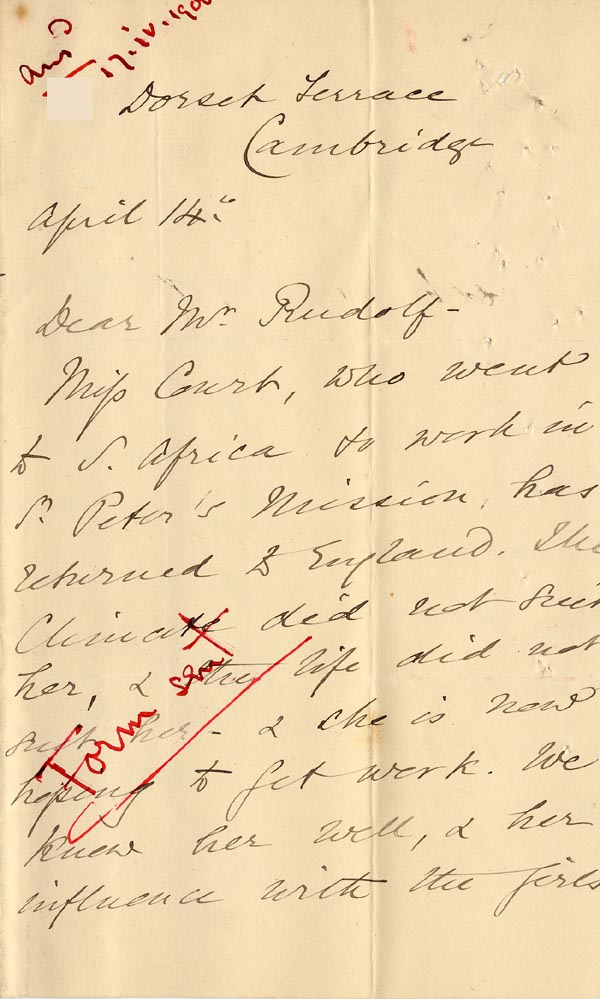 ansd
17.iv.190
Dorset Terrace
Cambridge
April 14th
Dear Mr Rudolf-
Miss Court, who went
to S. Africa to work in
St Peter's Mission, has
returned to England. The
Climate did not suit
her, & the life did not
suit her - & she is now
hoping to get work. We
knew her well, & her
influence with the girls
Form sent